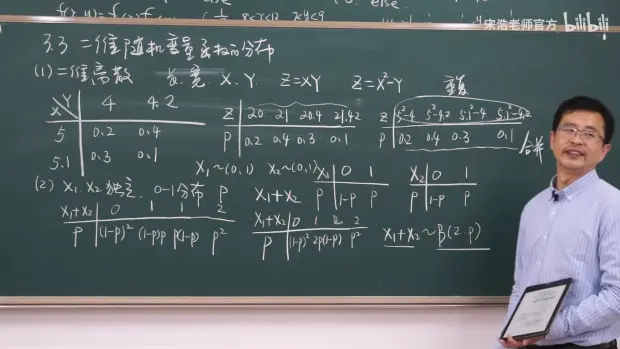 宋浩老师官方 bilibili
3.3 二维随机变量函数的分布
(1) 二维离散 长、宽 X、Y. Z=XY Z=X²-Y
X\Y 4 4.2
5 0.2 0.4
5.1 0.3 0.1
Z 20 21 20.4 21.42
P 0.2 0.4 0.3 0.1
Z 5²-4 5²-4.2 5.1²-4 5.1²-4.2
P 0.2 0.4 0.3 0.1
合并
(2) X₁、X₂ 独立、0-1分布 P
X₁~(0,1) X₂~(0,1)
X₁+X₂
X₁ 0 1
P 1-P P
X₂ 0 1
P 1-P P
X₁+X₂ 0 1 1 2
P (1-P)² (1-P)P P(1-P) P²
X₁+X₂ 0 1 2
P (1-P)² 2P(1-P) P²
X₁+X₂~B(2,P)